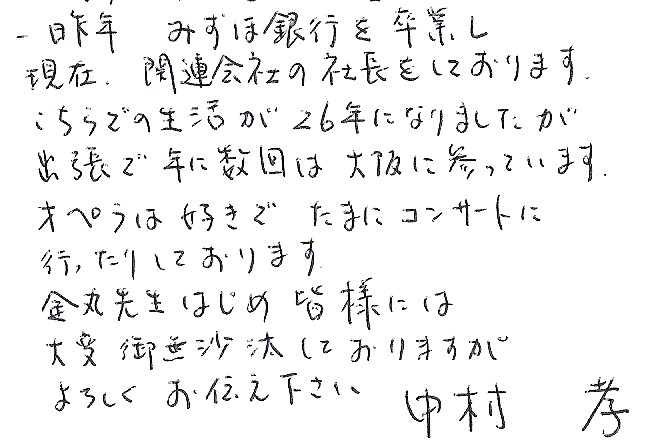 一昨年 みずほ銀行を卒業し
現在、関連会社の社長をしております。
こちらでの生活が26年になりましたが
出張で年に数回は大阪に参っています。
オペラは好きで たまにコンサートに
行ったりしております
金丸先生はじめ 皆様には
大変御無沙汰しておりますが
よろしく お伝え下さい 中村 孝